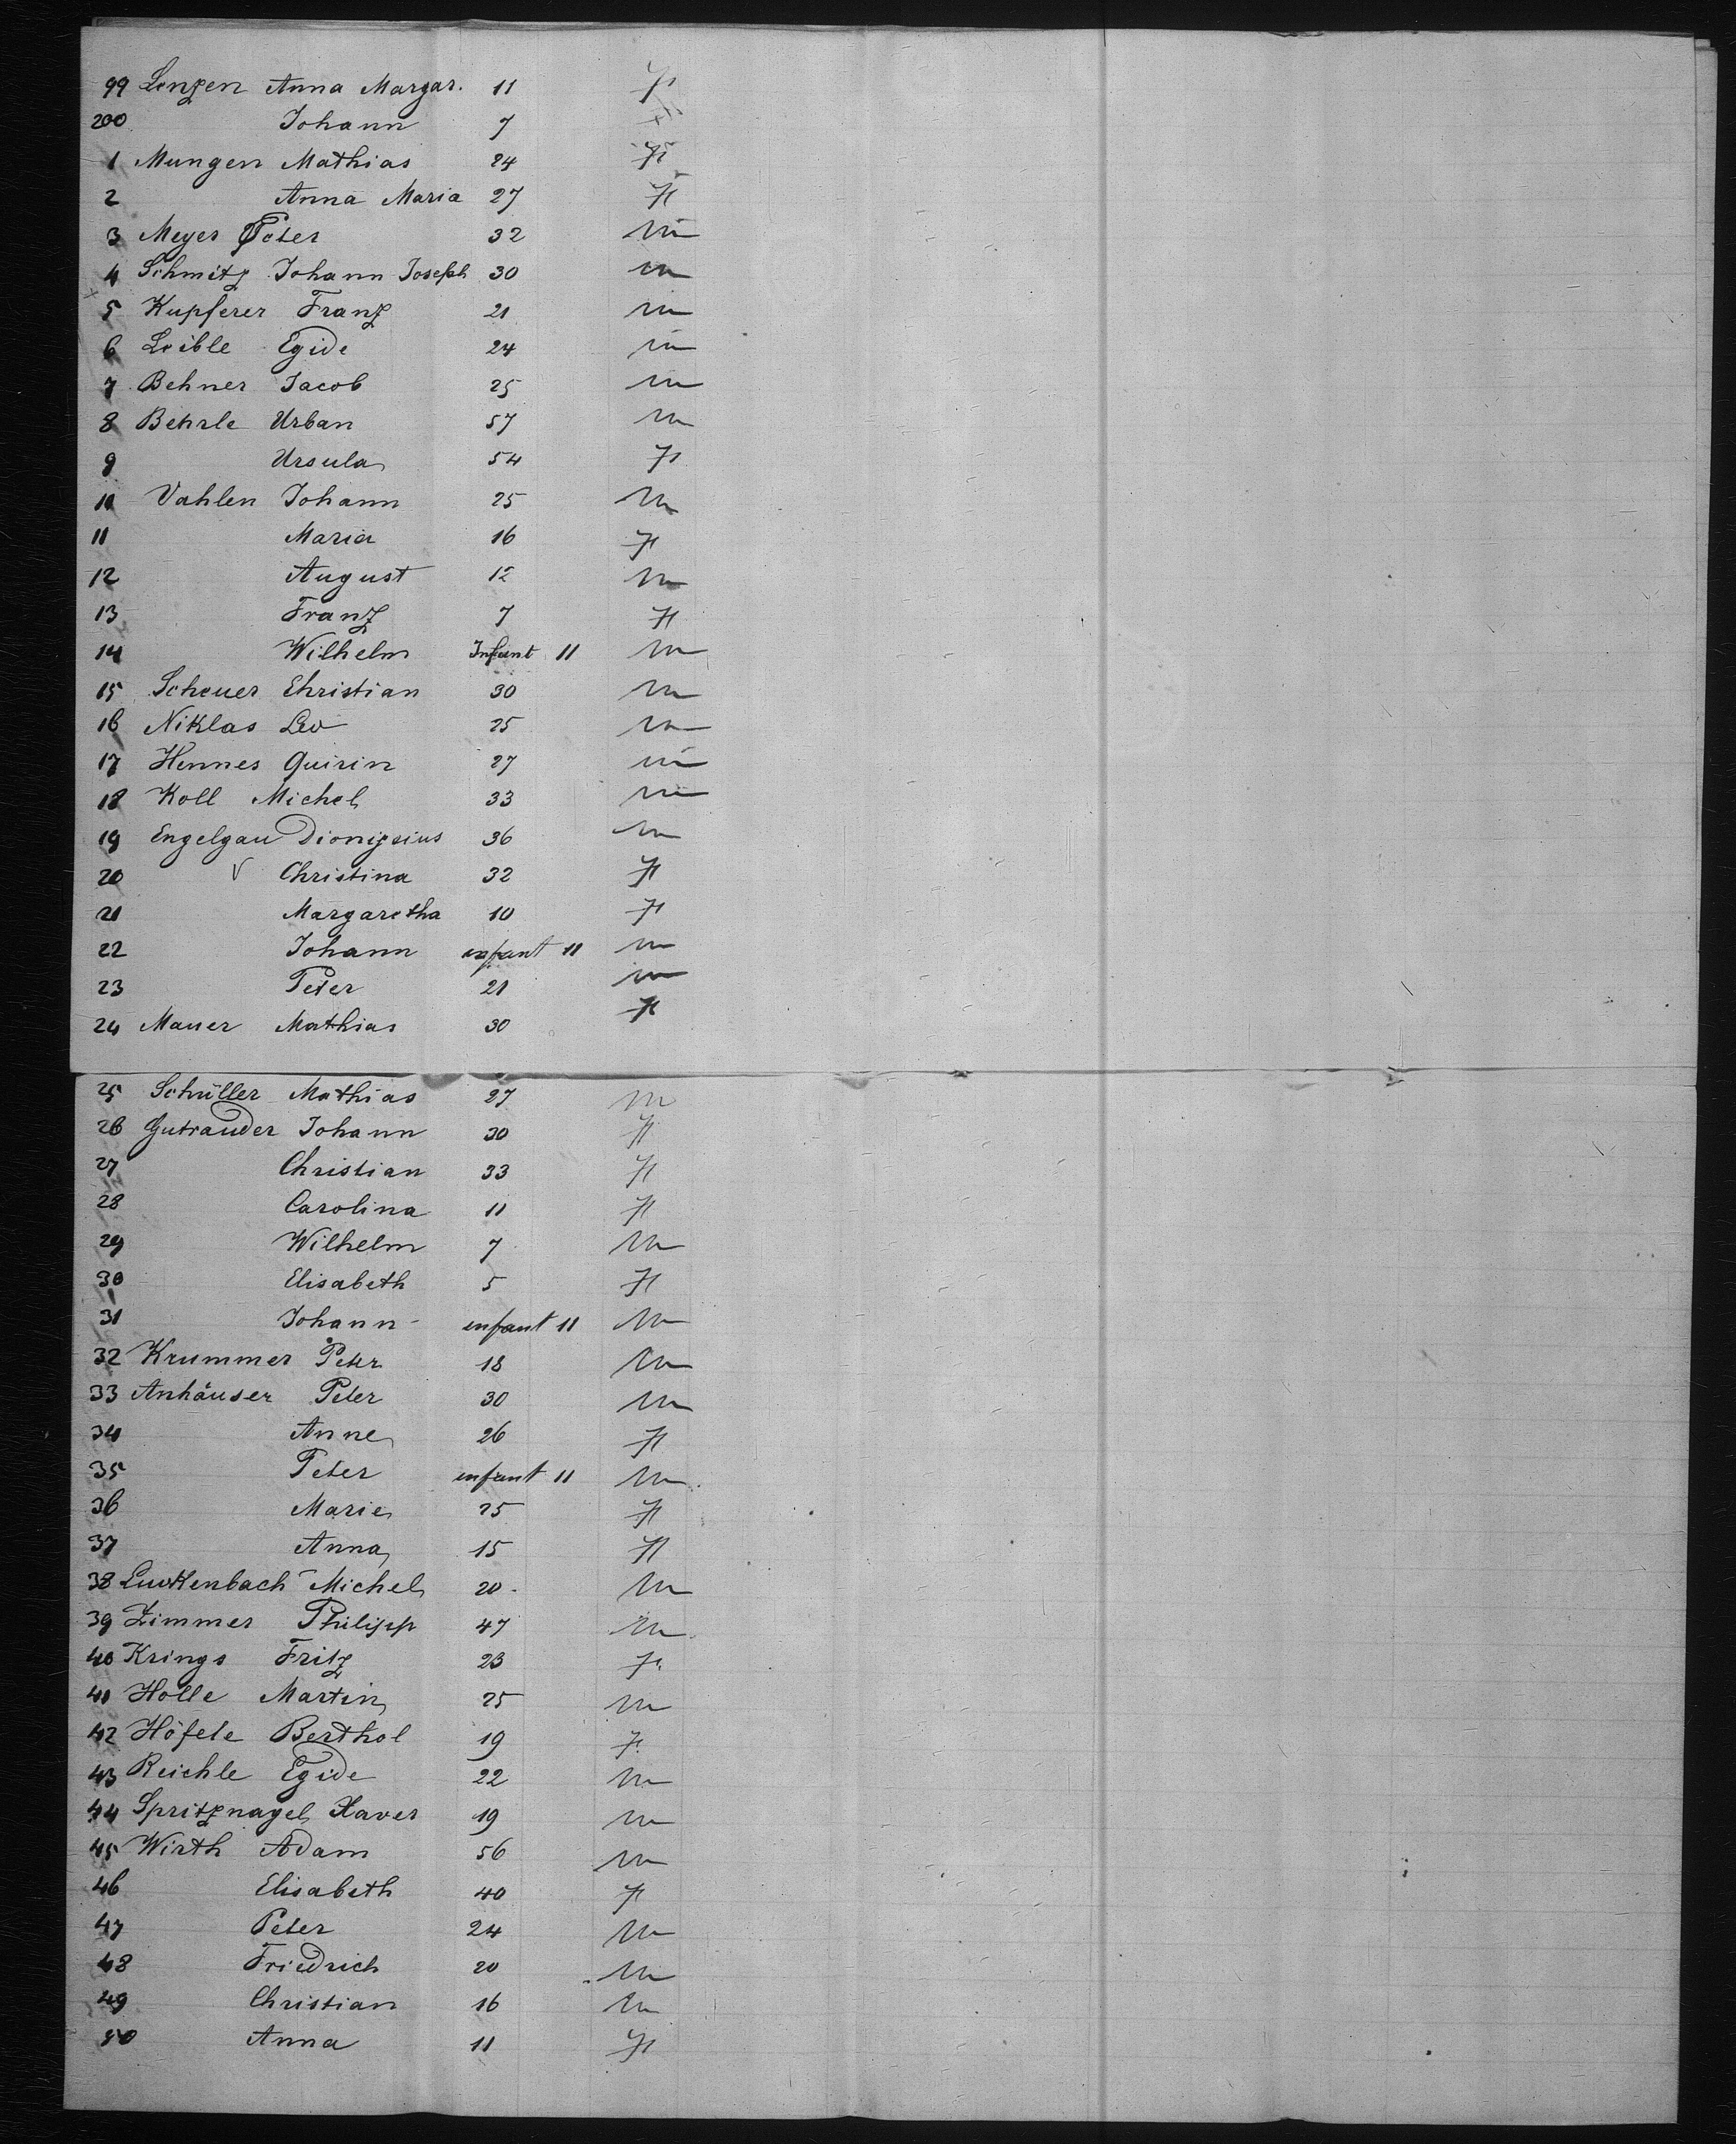 99 Lenzen Anna Margar. 11 f
200 Johann 7 f
1 Mungen Mathias 24 f
2 Anna Maria 27 f
3 Meyer Peter 32 m
4 Schmitz Johann Joseph 30 m
5 Kupferer Franz 21 m
6 Loible Egide 24 m
7 Behner Jacob 25 m
8 Behrle Urban 57 m
9 Ursula 54 f
10 Vahlen Johann 25 m
11 Maria 16 f
12 August 12 m
13 Franz 7 f
14 Wilhelm Infant 11 m
15 Scheuer Christian 30 m
16 Niklas Leo 25 m
17 Hennes Quirin 27 m
18 Koll Michel 33 m
19 Engelgau Dionysius 36 m
20 Christina 32 f
21 Margaretha 10 f
22 Johann enfant 11 m
23 Peter 21 m
24 Mauer Mathias 30 f
25 Schüller Mathias 27 m
26 Gutrauder Johann 30 f
27 Christian 33 f
28 Carolina 11 f
29 Wilhelm 7 m
30 Elisabeth 5 f
31 Johann enfant 11 m
32 Krummer Peter 18 m
33 Anhäuser Peter 30 m
34 Anne 26 f
35 Peter enfant 11 m
36 Marie 25 f
37 Anna 15 f
38 Luckenbach Michel 20 m
39 Zimmer Philipp 47 m
40 Krings Fritz 23 f
41 Holle Martin 25 m
42 Höfele Berthol 19 f
43 Reichle Egide 22 m
44 Spritznagel Xaver 19 m
45 Wirth Adam 56 m
46 Elisabeth 40 f
47 Peter 24 m
48 Friedrich 20 m
49 Christian 16 m
50 Anna 11 f